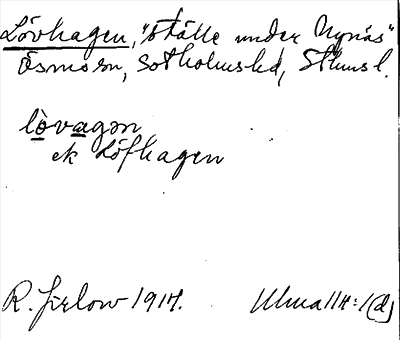 Lövhagen, "ställe under Nynäs"
Ösmo sn, Sotholms hd, Sthms l.
lòvagən
ek Löfhagen
R. Jirlow 1917. Ulma 114:1(d)